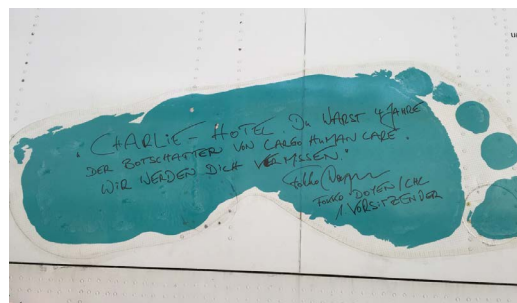 "CHARLIE - HOTEL. DU WARST 4 JAHRE
DER BOTSCHAFTER VON CARGO HUMAN CARE.
WIR WERDEN DICH VERMISSEN."
FOKKO DOYEN / CHC
1 VORSITZENDER